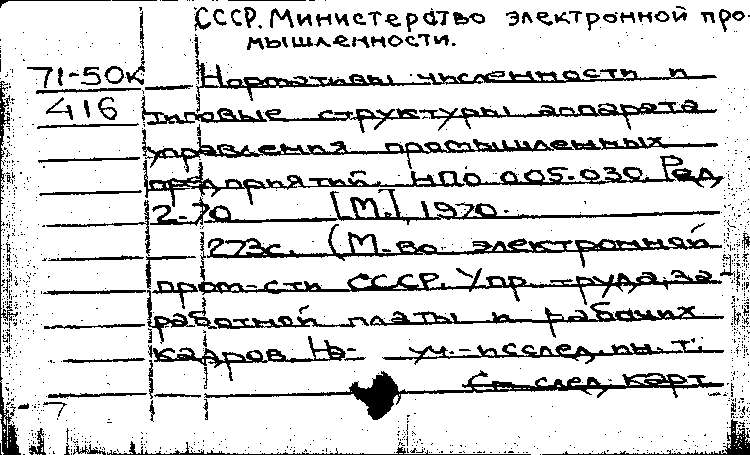 СССР. Министерство электронной про-
мышленности.
71-50к Нормативы численности и
416 типовые структуры аппарата
управления промышленных
предприятий. НПО.005.030. Ред.
2-70. [М.], 1970.
273с. (М-во электронной
пром-сти СССР. Упр. труда, за-
работной платы и рабочих
кадров. На- уч.-исслед. ин-т.
См. след. карт.
7